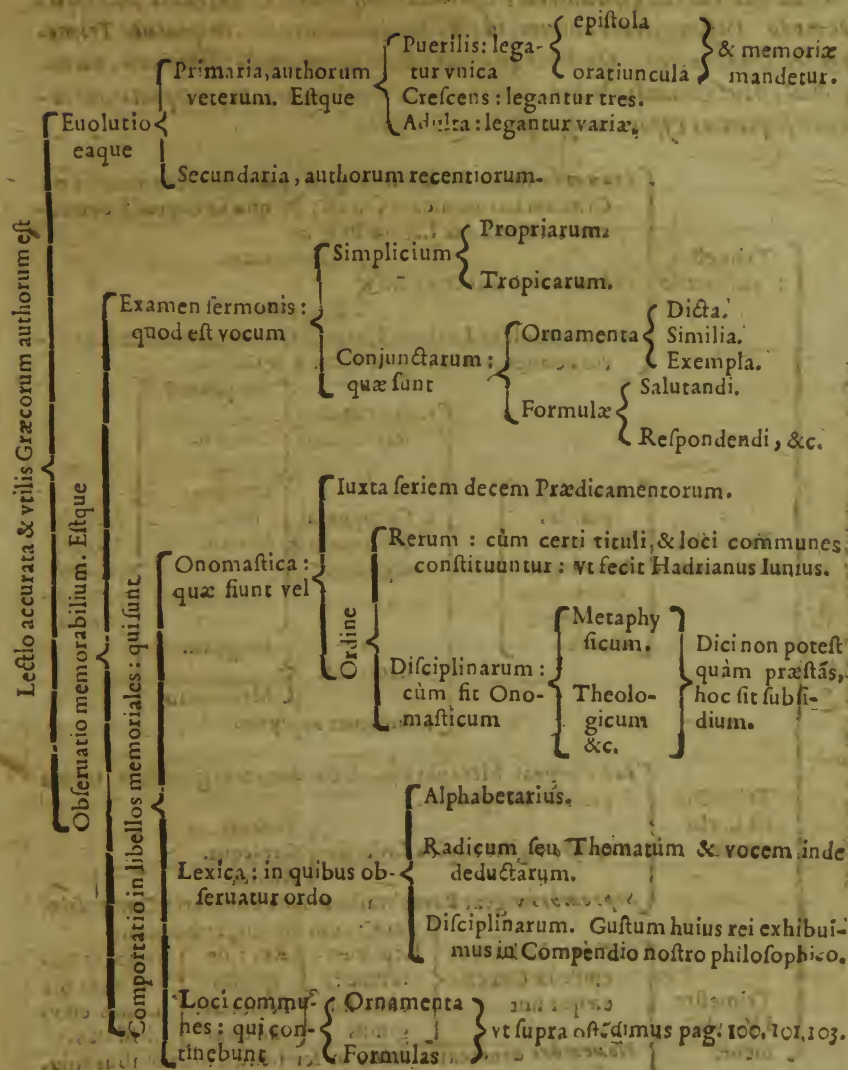 Lectio accurata & vtilis Græcorum authorum eſt
Euolutio
eaque
Primaria, authorum
veterum. Eſtque
Puerilis: lega-
tur vnica
epiſtola
oratiuncula
& memoriæ
mandetur.
Creſcens: legantur tres.
Adulta: legantur variæ.
Secundaria, authorum recentiorum.
Obſeruatio memorabilium. Eſtque
Examen ſermonis:
quod eſt vocum
Simplicium
Propriarum.
Tropicarum.
Conjunctarum:
quæ ſunt
Ornamenta
Dicta.
Similia.
Exempla.
Formulæ
Salutandi.
Reſpondendi, &c.
Comportatio in libellos memoriales: qui ſunt
Onomaſtica:
quæ fiunt vel
Iuxta ſeriem decem Prædicamentorum.
Ordine
Rerum: cùm certi tituli, & loci communes
conſtituuntur: vt fecit Hadrianus Iunius.
Diſciplinarum:
cùm fit Ono-
maſticum
Metaphy
ſicum.
Theolo-
gicum
&c.
Dici non poteſt
quàm præſtãs,
hoc ſit ſubſi-
dium.
Lexica: in quibus ob-
ſeruatur ordo
Alphabetarius.
Radicum ſeu Thematum & vocem inde
deductarum.
Diſciplinarum. Guſtum huius rei exhibui-
mus in Compendio noſtro philoſophico.
Loci commu-
nes: qui con-
tinebunt
Ornamenta
Formulas
vt ſupra oſtẽdimus pag. 100. 101. 103.